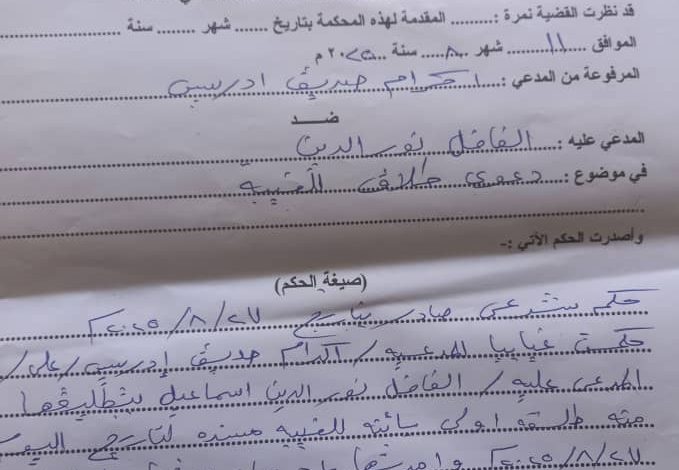 قد نظرت القضية نمرة : ......... المقدمة لهذه المحكمة بتاريخ ...... شهر ........ سنة ..........
الموافق ...١١... شهر ..٨.. سنة ٢٠٢٥ م
المرفوعة من المدعي : اكرام صديق ادريس
ضــد
المدعي عليه : الفاضل نور الدين
في موضوع : دعوى طلاق للغيبة
وأصدرت الحكم الآتي :-
(صيغة الحكم)
حكم شرعي صادر بتاريخ ٢٧/٨/٢٠٢٥م
حكمت غيابيا للمدعيه/ اكرام صديق إدريس/على/
المدعى عليه/ الفاضل نور الدين اسماعيل بتطليقها
منه طلقة اولى بائنه للغيبه مسنده لتاريخ اليوم
٢٧/٨/٢٠٢٥م